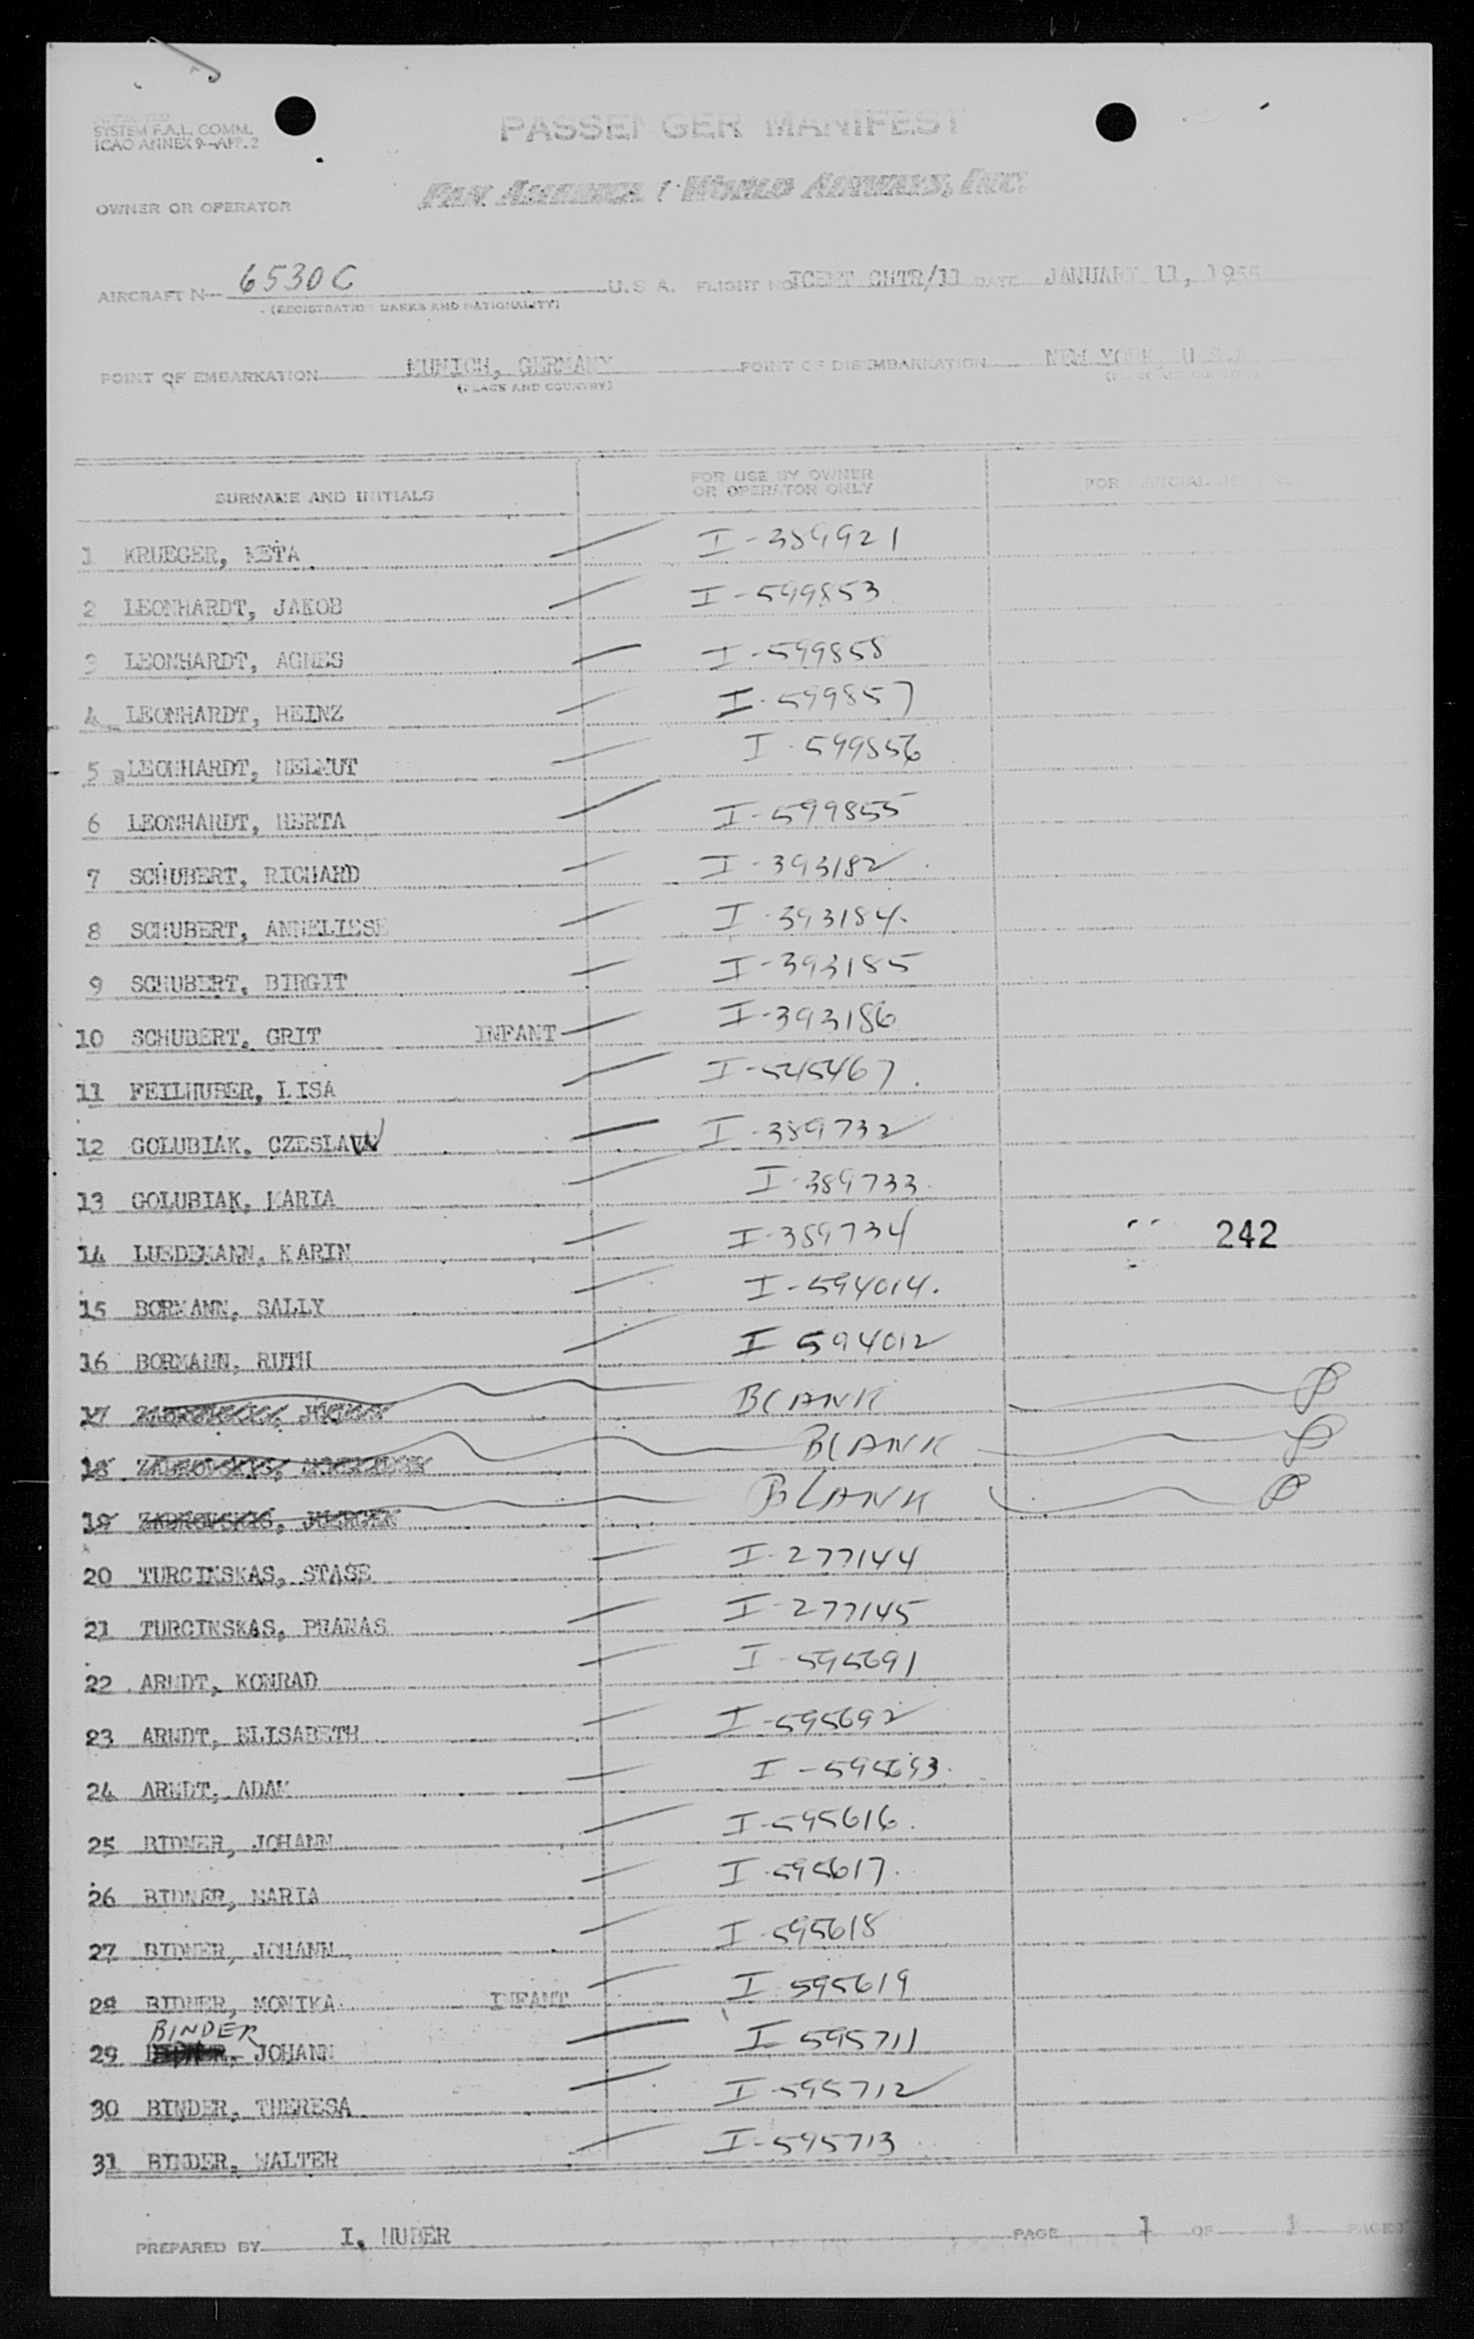 SYSTEM F.A.L. COMM.
ICAO ANNEX 9-APP. 2
PASSENGER MANIFEST
PAN AMERICAN WORLD AIRWAYS, INC.
OWNER OR OPERATOR
AIRCRAFT N 6530C U.S.A. FLIGHT NO ICEMT CHTR/11 DATE JANUARY 11, 1955
(REGISTRATION MARKS AND NATIONALITY)
POINT OF EMBARKATION MUNICH, GERMANY POINT OF DISEMBARKATION NEW YORK, U.S.A
(PLACE AND COUNTRY)
SURNAME AND INITIALS FOR USE BY OWNER OR OPERATOR ONLY FOR OFFICIAL USE
1 KRUEGER, META I-389921
2 LEONHARDT, JAKOB I-599853
3 LEONHARDT, AGNES I-599858
4 LEONHARDT, HEINZ I-599857
5 LEONHARDT, HELMUT I-599856
6 LEONHARDT, HERTA I-599855
7 SCHUBERT, RICHARD I-393182
8 SCHUBERT, ANNELIESE I-393184
9 SCHUBERT, BIRGIT I-393185
10 SCHUBERT, GRIT INFANT I-393186
11 FEILHUBER, LISA I-545467
12 GOLUBIAK, CZESLAW I-389732
13 GOLUBIAK, MARIA I-389733
14 LUEDEMANN, KARIN I-389734 242
15 BORMANN, SALLY I-594014
16 BORMANN, RUTH I 594012
17 BLANK
18 BLANK
19 JUERGEN BLANK
20 TURCINSKAS, STASE I-277144
21 TURCINSKAS, PRANAS I-277145
22 ARNDT, KONRAD I-595691
23 ARNDT, ELISABETH I-595692
24 ARNDT, ADAM I-595693
25 BIDNER, JOHANN I-595616
26 BIDNER, MARIA I-595617
27 BIDNER, JOHANN I-595618
28 BIDNER, MONIKA INFANT I 595619
BINDER
29 JOHANN I-595711
30 BINDER, THERESA I-595712
31 BINDER, WALTER I-595713
PREPARED BY I. HUBER PAGE 1 OF 1 PAGES